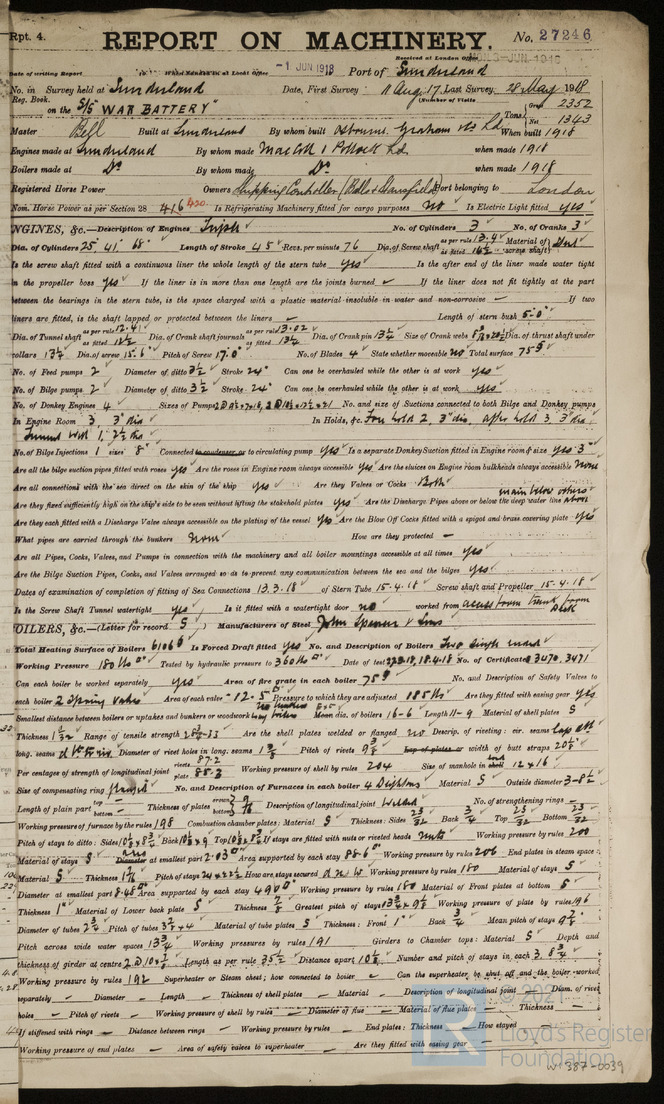 Rpt. 4.
REPORT ON MACHINERY. No. 27246
Received at London Office 3-JUN.1918
Date of writing Report When handed in at Local Office -1 JUN 1918 Port of Sunderland
No. in Survey held at Sunderland Date, First Survey 11 Aug. 17. Last Survey 28 May 1918
Reg. Book. (Number of Visits
on the S/S "WAR BATTERY" Tons Gross 2352
Net 1343
Master Bell Built at Sunderland By whom built Osbourne, Graham & Co Ld When built 1918
Engines made at Sunderland By whom made MacColl & Pollock Ld. when made 1918
Boilers made at Do By whom made Do. when made 1918
Registered Horse Power Owners Shipping Controller Port belonging to London
Nom. Horse Power as per Section 28 416 420 Is Refrigerating Machinery fitted for cargo purposes No Is Electric Light fitted Yes
ENGINES, &c.—Description of Engines Triple No. of Cylinders 3 No. of Cranks 3
Dia. of Cylinders 25" 41" 68" Length of Stroke 45" Revs. per minute 76 Dia. of Screw shaft as per rule 13.9 as fitted Material of screw shaft Steel
Is the screw shaft fitted with a continuous liner the whole length of the stern tube Yes Is the after end of the liner made water tight
in the propeller boss Yes If the liner is in more than one length are the joints burned — If the liner does not fit tightly at the part
between the bearings in the stern tube, is the space charged with a plastic material insoluble in water and non-corrosive — If two
liners are fitted, is the shaft lapped or protected between the liners — Length of stern bush 5'-0"
Dia. of Tunnel shaft as per rule 12.41 as fitted Dia. of Crank shaft journals as per rule 13.02 as fitted 13¾ Dia. of Crank pin 13¾ Size of Crank webs Dia. of thrust shaft under
collars 13¾ Dia. of screw 15'.6" Pitch of Screw 17'.0" No. of Blades 4 State whether moveable No Total surface 75
No. of Feed pumps 2 Diameter of ditto 3½ Stroke 24" Can one be overhauled while the other is at work yes
No. of Bilge pumps 2 Diameter of ditto 3½ Stroke 24" Can one be overhauled while the other is at work yes
No. of Donkey Engines 4 Sizes of Pumps No. and size of Suctions connected to both Bilge and Donkey pumps
In Engine Room 3, 3" dia In Holds, &c. Fore hold 2, 3" dia, after hold 3, 3" dia.
Tunnel Well 1, 2½ dia
No. of Bilge Injections 1 sizes 8" Connected to condenser or to circulating pump Yes Is a separate Donkey Suction fitted in Engine room & size yes 3"
Are all the bilge suction pipes fitted with roses Yes Are the roses in Engine room always accessible Yes Are the sluices on Engine room bulkheads always accessible None
Are all connections with the sea direct on the skin of the ship yes Are they Valves or Cocks Both
Are they fixed sufficiently high on the ship's side to be seen without lifting the stokehold plates yes Are the Discharge Pipes above or below the deep water line main below others above
Are they each fitted with a Discharge Valve always accessible on the plating of the vessel yes Are the Blow Off Cocks fitted with a spigot and brass covering plate yes
What pipes are carried through the bunkers None How are they protected —
Are all Pipes, Cocks, Valves, and Pumps in connection with the machinery and all boiler mountings accessible at all times yes
Are the Bilge Suction Pipes, Cocks, and Valves arranged so as to prevent any communication between the sea and the bilges yes
Dates of examination of completion of fitting of Sea Connections 13.3.18 of Stern Tube 15.4.18 Screw shaft and Propeller 15.4.18
Is the Screw Shaft Tunnel watertight yes Is it fitted with a watertight door no worked from access from trunk from deck
BOILERS, &c.—(Letter for record S) Manufacturers of Steel John Spencer & Sons
Total Heating Surface of Boilers 6106 Is Forced Draft fitted Yes No. and Description of Boilers Two Single ended
Working Pressure 180 lbs Tested by hydraulic pressure to 360 lbs Date of test 18.4.18 No. of Certificate 3470, 3471
Can each boiler be worked separately yes Area of fire grate in each boiler 75 No. and Description of Safety Valves to
each boiler 2 Spring valves Area of each valve 12.5 Pressure to which they are adjusted 185 lbs Are they fitted with easing gear yes
Smallest distance between boilers or uptakes and bunkers or woodwork Mean dia. of boilers 16-6 Length 11-9 Material of shell plates S
Thickness 1 Range of tensile strength Are the shell plates welded or flanged no Descrip. of riveting: cir. seams lap
long. seams Diameter of rivet holes in long. seams 1⅜ Pitch of rivets 9⅜ Lap of plates or width of butt straps 20⅛
Per centages of strength of longitudinal joint rivets 87.2 plate 85.3 Working pressure of shell by rules 204 Size of manhole in shell 12 x 16
Size of compensating ring flanged No. and Description of Furnaces in each boiler 4 Deightons Material S Outside diameter 3-8½
Length of plain part top bottom — Thickness of plates crown bottom 9/16 Description of longitudinal joint Welded No. of strengthening rings —
Working pressure of furnace by the rules 198 Combustion chamber plates: Material S Thickness: Sides 23/32 Back ¾ Top 23/32 Bottom 23/32
Pitch of stays to ditto: Sides Back Top If stays are fitted with nuts or riveted heads nuts Working pressure by rules 200
Material of stays S Diameter at smallest part 2.03 Area supported by each stay 88.6 Working pressure by rules 206 End plates in steam space:
Material S Thickness Pitch of stays How are stays secured d n w Working pressure by rules 180 Material of stays S
Diameter at smallest part 8.48 Area supported by each stay 490 Working pressure by rules 180 Material of Front plates at bottom S
Thickness 1" Material of Lower back plate S Thickness ⅞ Greatest pitch of stays 13¾ x 9½ Working pressure of plate by rules 196
Diameter of tubes 2¾ Pitch of tubes Material of tube plates S Thickness: Front 1" Back ¾ Mean pitch of stays 9⅞
Pitch across wide water spaces 13¾ Working pressures by rules 191 Girders to Chamber tops: Material S Depth and
thickness of girder at centre Length as per rule 35½ Distance apart 10⅛ Number and pitch of stays in each 3. 8¾
Working pressure by rules 192 Superheater or Steam chest; how connected to boiler — Can the superheater be shut off and the boiler worked
separately — Diameter — Length — Thickness of shell plates — Material — Description of longitudinal joint — Diam. of rivet
holes — Pitch of rivets — Working pressure of shell by rules — Diameter of flue — Material of flue plates — Thickness —
If stiffened with rings — Distance between rings — Working pressure by rules — End plates: Thickness — How stayed —
Working pressure of end plates — Area of safety valves to superheater — Are they fitted with easing gear —
© 2021
Lloyd's Register
Foundation
W1387-0039